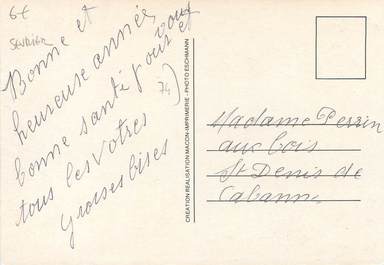 6€
SEVRIER
Bonne et
heureuse année
bonne santé pour vous et
tous les vôtres
grosses bises
74)
CREATION REALISATION MACON-IMPRIMERIE - PHOTO ESCHMANN
Madame Perrin
aux bois
St Denis de
Cabanne